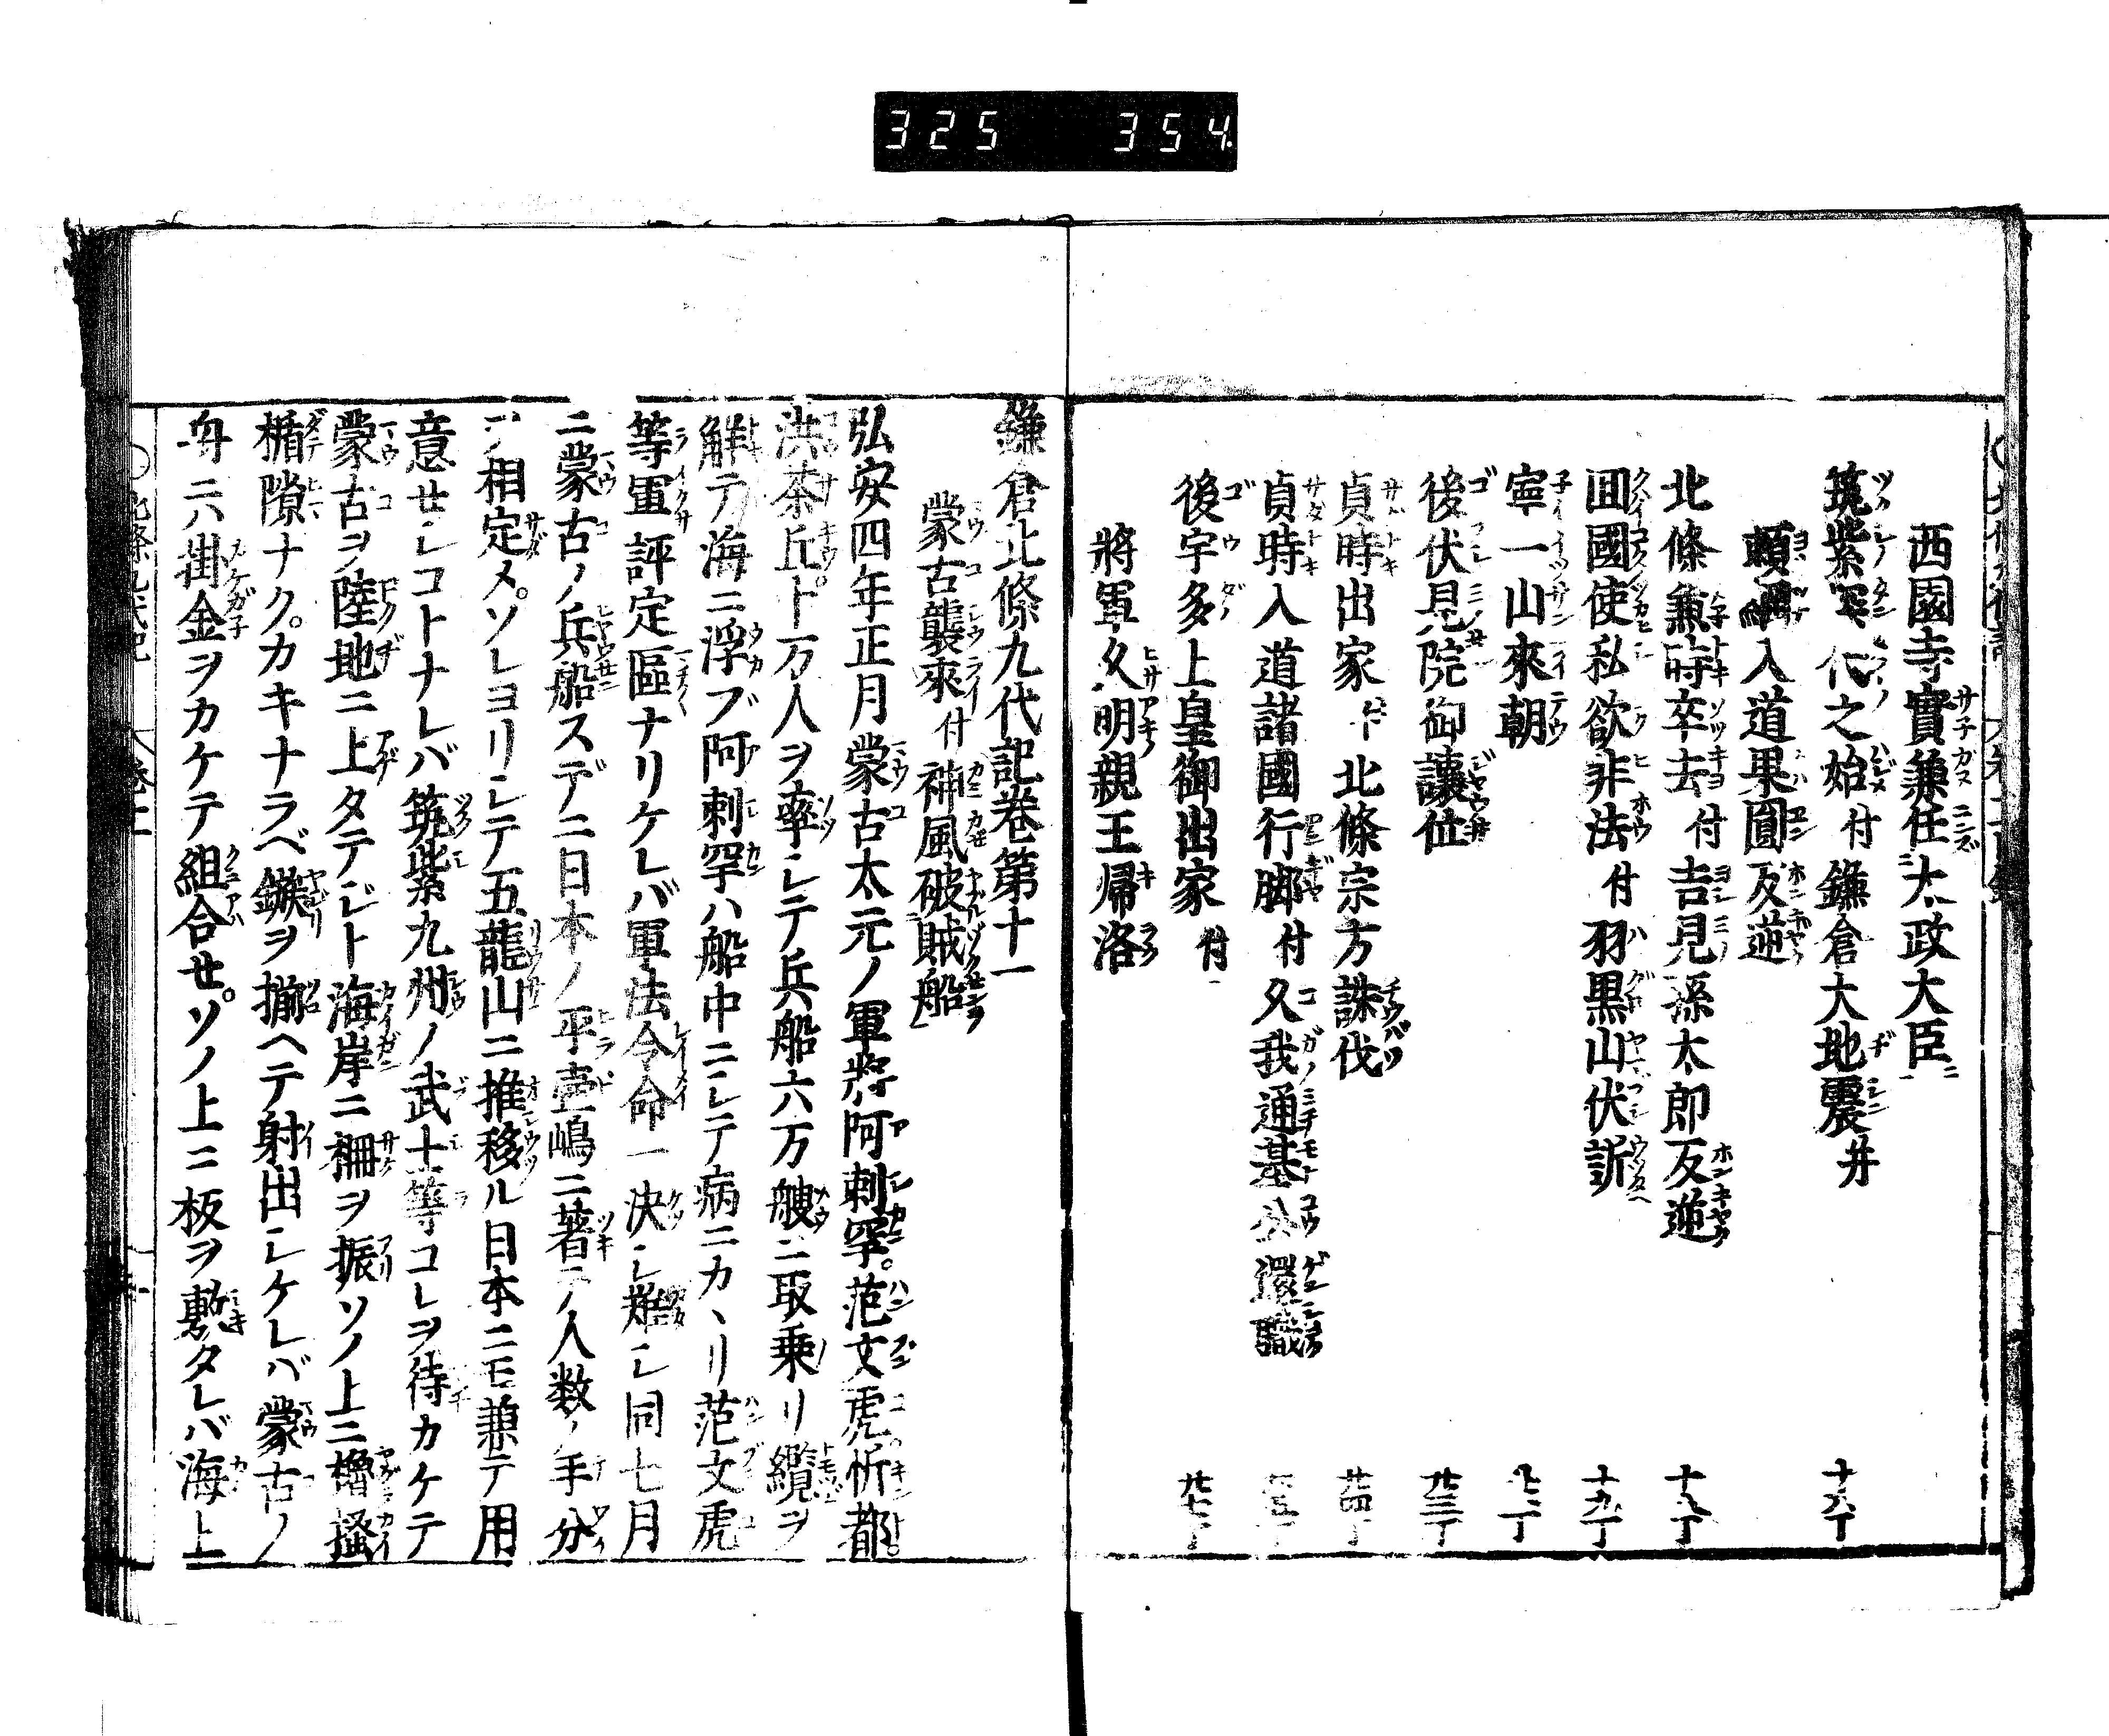 325 354
西園寺實兼任太政大臣
筑紫探題之始付鎌倉大地震并 十六丁
頼綱入道果圓反逆
北條兼時卒去付吉見孫太郎反逆 十八丁
囬國使私欲非法付羽黒山伏訴 十九丁
寧一山來朝
後伏見院御讓位 廿三丁
貞時出家 北條宗方誅伐 廿四丁
貞時入道諸國行脚付久我通基公還職
後宇多上皇御出家付 廿七丁
將軍久明親王帰洛
鎌倉北條九代記巻第十一
蒙古襲來付神風破賊船
弘安四年正月蒙古太元ノ軍將阿刺罕。范文虎。忻都。
洪茶丘。十万人ヲ率シテ兵船六万艘ニ取乗リ纜ヲ
解テ海ニ浮ブ阿刺罕ハ船中ニシテ病ニカヽリ范文虎
等軍評定區ナリケレバ軍法令命一決シ難シ同七月
ニ蒙古ノ兵船スデニ日本ノ平壷嶋ニ著テノ人数ノ手分
ヲ相定メ。ソレヨリシテ五龍山ニ推移ル日本ニモ兼テ用
意セシコトナレバ筑紫九州ノ武士等コレヲ待カケテ
蒙古ヲ陸地ニ上タテジト海岸ニ柵ヲ振ソノ上ニ櫓掻
楯隙ナク。カキナラベ鏃ヲ揃ヘテ射出シケレバ蒙古ノ
舟ニハ掛金ヲカケテ組合セ。ソノ上ニ板ヲ敷タレバ海上